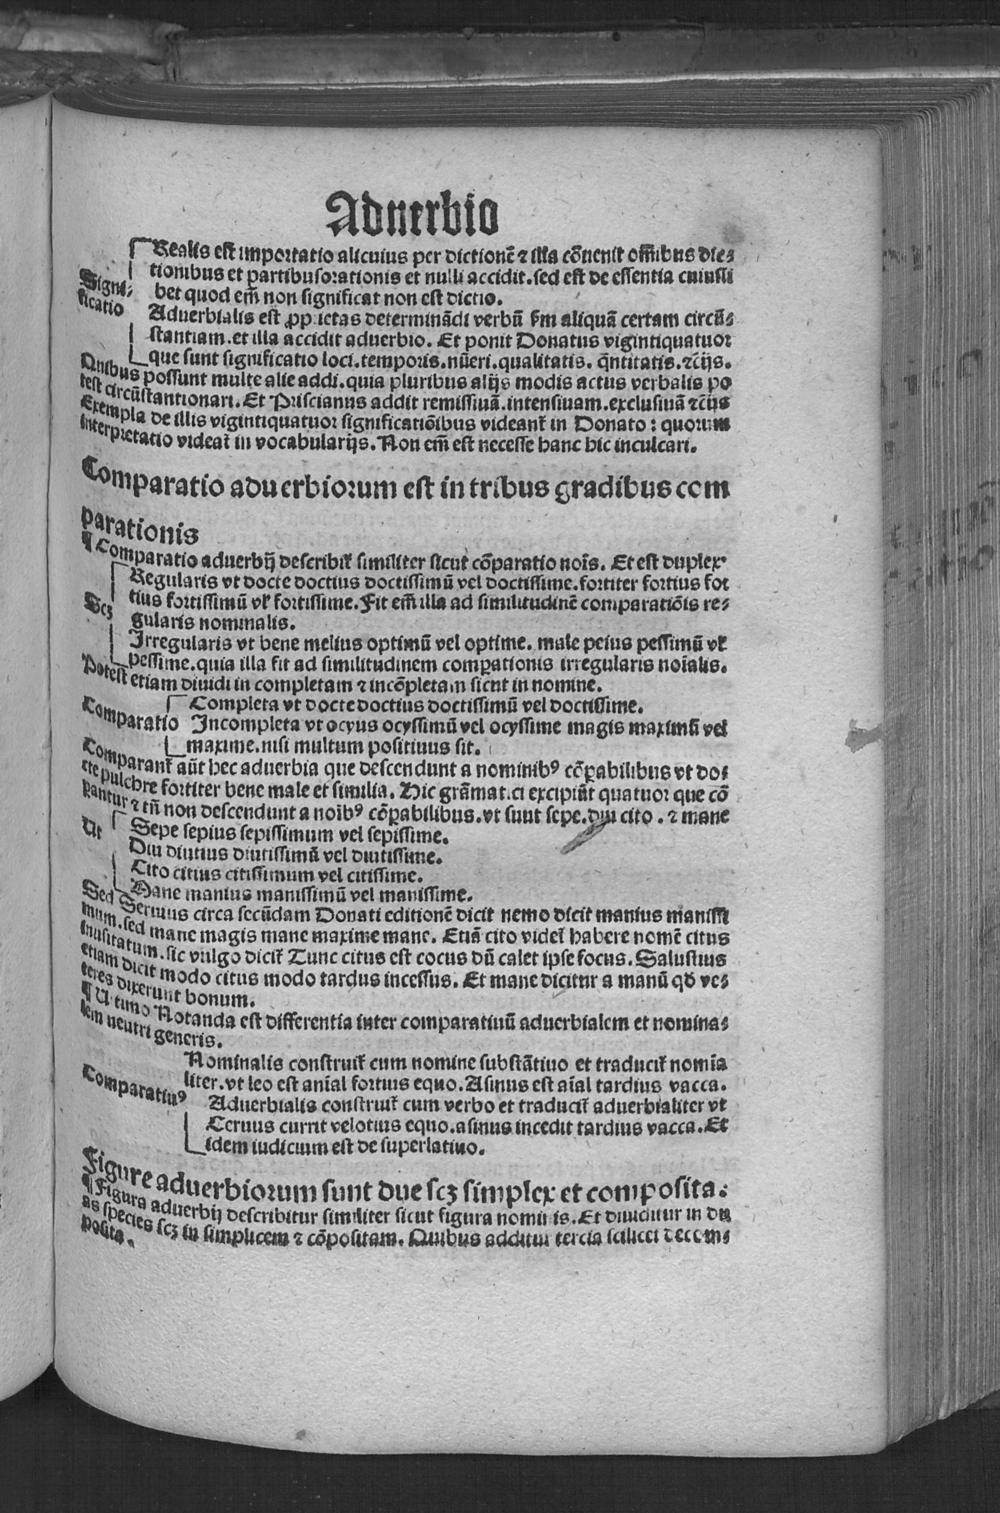 Aduerbio
Realis est importatio alicuius per dictionē ⁊ illa cōuenit om̄ibus dic⸗
tionibus et partibusorationis et nulli accidit.sed est de essentia cuiusli
Signi⸗ bet quod em̄ non significat non est dictio.
ficatio Aduerbialis est ꝓprietas determinādi verbū ẜm aliquā certam circū⸗
stantiam.et illa accidit aduerbio. Et ponit Donatus vigintiquatuor
que sunt significatio loci.temporis.nūeri.qualitatis. q̄ntitatis.⁊cijs.
Quibus possunt multe alie addi.quia pluribus alijs modis actus verbalis po
test circūstantionari. Et Priscianus addit remissiuā.intensiuam.exclusiuā ⁊cijs
Exempla de illis vigintiquatuor significatiōibus videant᷑ in Donato : quorum
interpretatio videat᷑ in vocabularijs. Non em̄ est necesse hanc hic inculcari.
Comparatio aduerbiorum est in tribus gradibus com
parationis
¶ Comparatio aduerbij describit᷑ similiter sicut cōparatio nois̄. Et est duplex
Regularis vt docte doctius doctissimū vel doctissime.fortiter fortius for
Scꝫ tius fortissimū vl᷑ fortissime. Fit em̄ illa ad similitudinē comparatiōis re⸗
gularis nominalis.
Irregularis vt bene melius optimū vel optime. male peius pessimū vl᷑
pessime.quia illa fit ad similitudinem comꝑationis irregularis noīalis.
Potest etiam diuidi in completam ⁊ incōpletam sicut in nomine.
Completa vt docte doctius doctissimū vel doctissime.
Comparatio Incompleta vt ocyus ocyssimū vel ocyssime magis maximū vel
maxime.nisi multum positiuus sit.
Comparant᷑ aūt hec aduerbia que descendunt a nominibꝰ cōꝑabilibus vt doc⸗
te pulchre fortiter bene male et similia. Hic grāmatici excipiūt quatuor que cō
parantur ⁊ tn̄ non descendunt a noībꝰ cōꝑabilibus.vt sunt sepe.diu cito . ⁊ mane
Ut Sepe sepius sepissimum vel sepissime.
Diu diutius diutissimū vel diutissime.
Cito citius citissimum vel citissime.
Mane manius manissimū vel manissime.
Sed Seruius circa secūdam Donati editionē dicit nemo dicit manius manissi
mum.sed mane magis mane maxime mane. Etiā cito videt᷑ habere nomē citus
inusitatum.sic vulgo dicit᷑ Tunc citus est cocus dū calet ipse focus. Salustius
etiam dicit modo citus modo tardus incessus. Et mane dicitur a manū qđ ve⸗
teres dixerunt bonum.
¶ Ultimo Notanda est differentia inter comparatiuū aduerbialem et nomina⸗
lem neutri generis.
Nominalis construit᷑ cum nomine substātiuo et traducit᷑ nomīa
liter.vt leo est anīal fortius equo. Asinus est aīal tardius vacca.
Comparatiuꝰ Aduerbialis construit᷑ cum verbo et traducit᷑ aduerbialiter vt
Ceruus currit velotius equo.asinus incedit tardius vacca. Et
idem iudicium est de superlatiuo.
Figure aduerbiorum sunt due scꝫ simplex et composita.
¶ Figura aduerbij describitur similiter sicut figura nominis. Et diuiditur in du
as species scꝫ in simplicem ⁊ cōpositam. Quibus additur tercia scilicet decom⸗
posita.